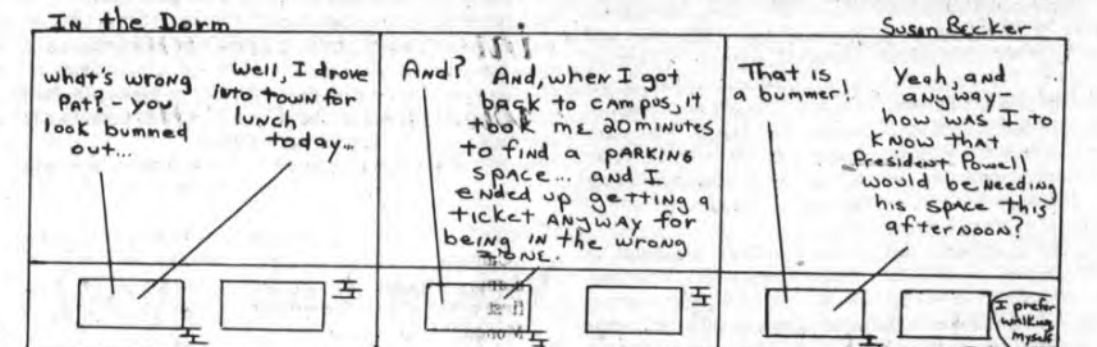 IN the Dorm
Susan Becker
what's wrong
PAT? - you
look bummed
out...
Well, I drove
into town for
lunch
today...
And?
And, when I got
back to campus, it
took me 20 minutes
to find a PARKING
space... and I
ended up getting a
ticket anyway for
being in the wrong
zone.
That is
a bummer!
Yeah, and
anyway-
how was I to
know that
President Powell
would be needing
his space this
afternoon?
I prefer
walking
myself